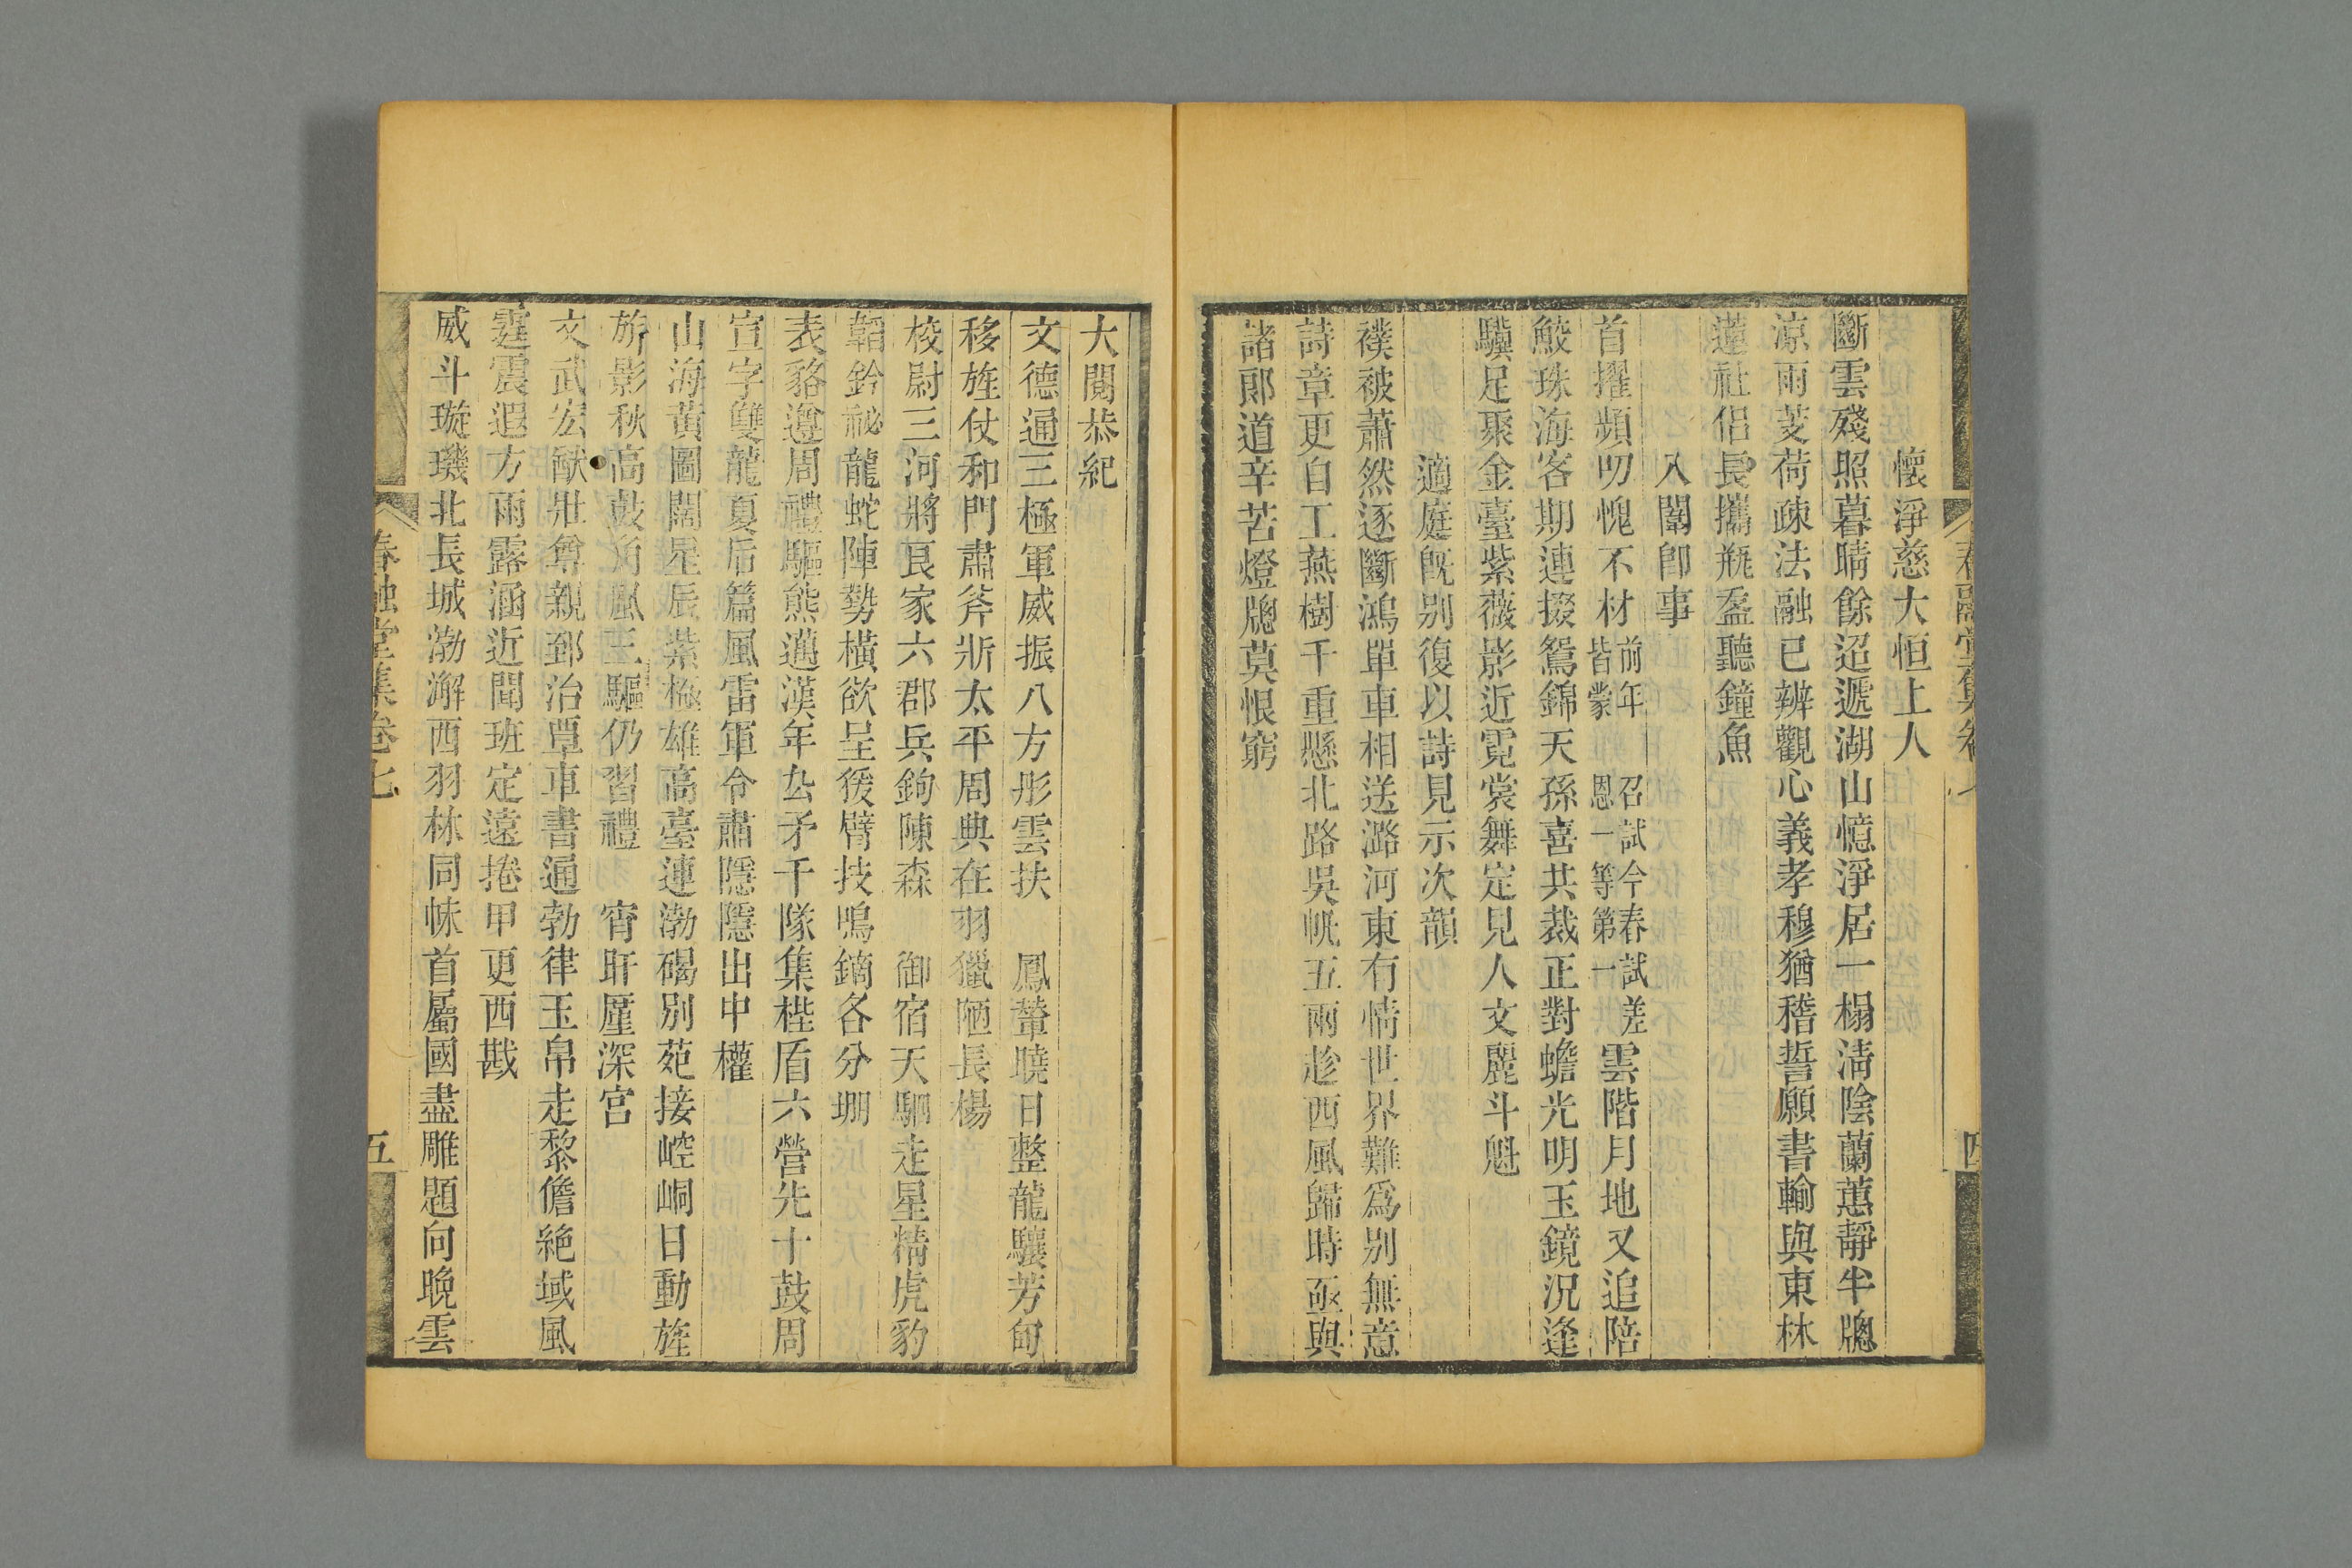 春融堂集卷七
四
懷淨慈大恒上人
斷雲殘照暮晴餘迢遞湖山憶淨居一榻淸陰蘭蕙靜半牕
涼雨芰荷疎法融已辨觀心義孝穆猶稽誓願書輸與東林
蓮社侶長攜瓶盋聽鐘魚
入闈卽事
首擢頻叨愧不材前年 召試今春試差皆蒙 恩一等第一雲階月地又追陪
鮫珠海客期連掇鴛錦天孫喜共裁正對蟾光明玉鏡況逢
驥足聚金臺紫薇影近霓裳舞定見人文麗斗魁
適庭旣别復以詩見示次韻
襆被蕭然逐斷鴻單車相送潞河東有情世界難爲别無意
詩章更自工燕樹千重懸北路吳帆五兩趁西風歸時亟與
諸郞道辛苦燈牕莫恨窮
大閱恭紀
文德通三極軍威振八方彤雲扶 鳳輦曉日整龍驤芳甸
移旌仗和門肅斧斨太平周典在羽獵陋長楊
校尉三河將良家六郡兵鉤陳森 御宿天駟走星精虎豹
韜鈐祕龍蛇陣勢橫欲呈猨臂技鳴鏑各分堋
表貉遵周禮驅熊邁漢年厹矛千隊集梐盾六營先十鼓周
宣字雙龍夏后篇風雷軍令肅隱隱出中權
山海黃圖闊星辰紫極雄高臺連渤碣别苑接崆峒日動旌
旂影秋高鼓角風三驅仍習禮 宵旰廑深宫
文武宏猷壯尊親郅治覃車書通勃律玉帛走黎儋絶域風
霆震遐方雨露涵近聞班定遠捲甲更西戡
威斗璇璣北長城渤澥西羽林同帓首屬國盡雕題向晚雲
春融堂集卷七
五